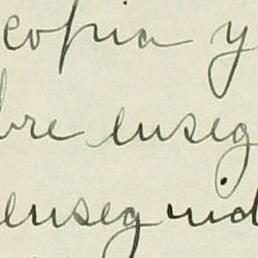 copia y
bre enseg
enseguid